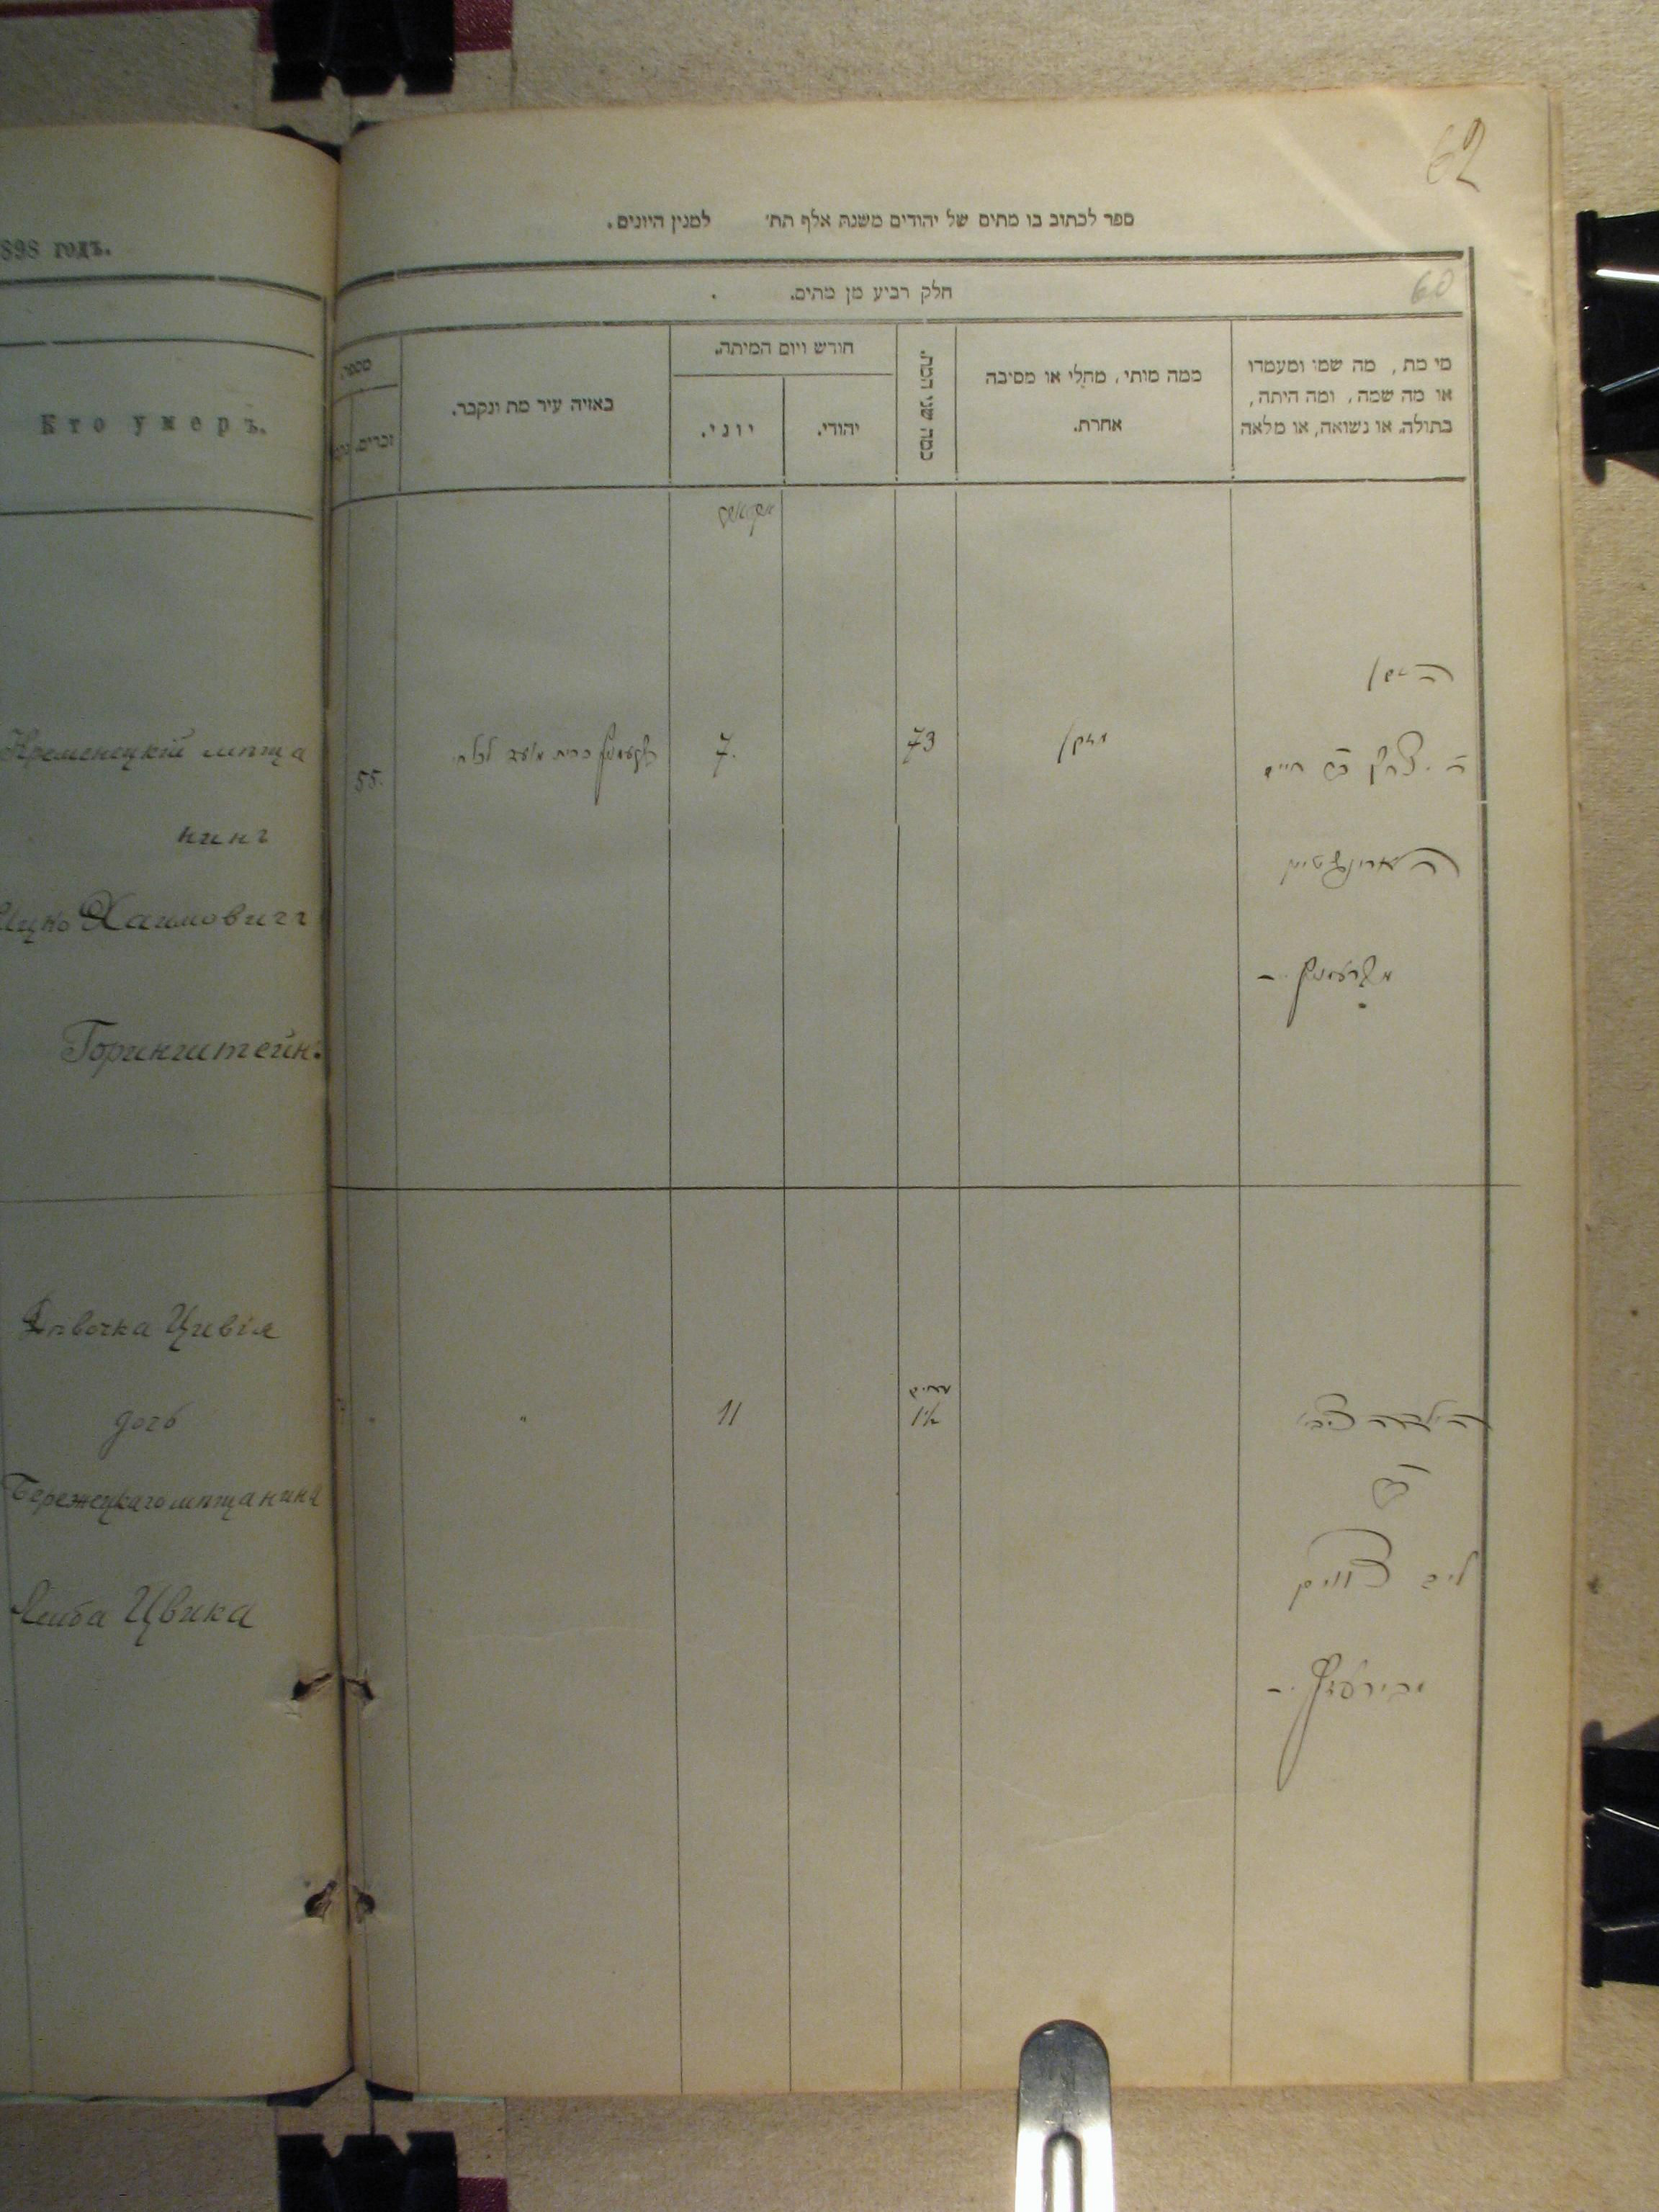 898 годъ.
Кто умеръ.
Кременецкій мѣща
нинъ
Ицко Хаимовичъ
Горинштейнъ.
Дѣвочка Цивія
дочь
Бережецкаго мѣщанина
Лейба Цвика
62
ספר לכתוב בו מתים של יהודים משנת אלף תת׳ למנין היונים.
60
חלק רביע מן מתים.
מי מת, מה שמו ומעמדו
או מה שמה, ומה היתה,
בתולה, או נשואה, או מלאה
ממה מותי, מחלי או מסיבה
אחרת.
כמה שני המת.
חודש ויום המיתה.
יהודי.
יוני.
באזיה עיר מת ונקבר.
מספר
זכרים.
הזקן
ר׳ יצחק בר חיים
הארינשטיין
מקרעמניץ
מזקן
73
7.
קרעמניץ בבית מועד לכל חי
55.
הילדה צביי׳
בר
ליב צוויק
11
"